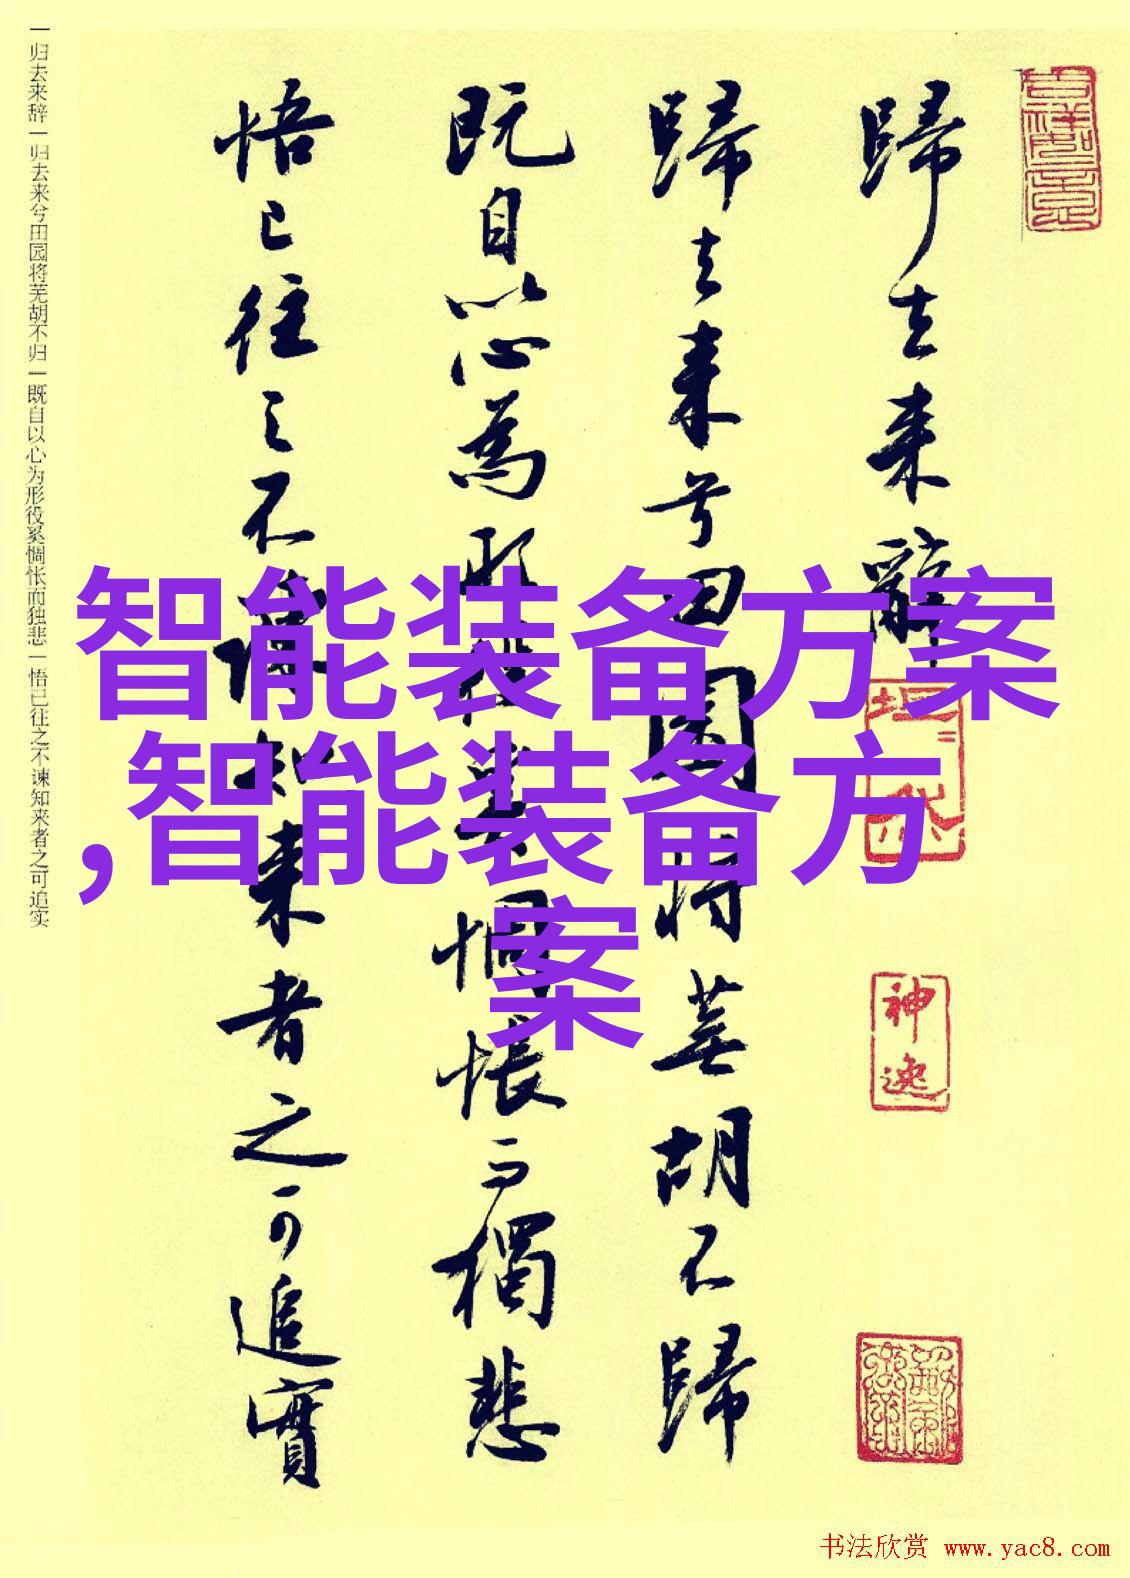 歸去来辭
歸去来兮田園将蕪胡不歸
既自以心為形役奚惆悵而獨悲
悟已往之不諫知来者之可追實
一归去来辞一归去来兮田园将芜胡不归一既自以心为形役奚惆怅而独悲一悟已往之不谏知来者之可追实
智能装备方案
,智能装备方
案
神逸
书法欣赏 www.yac8.com